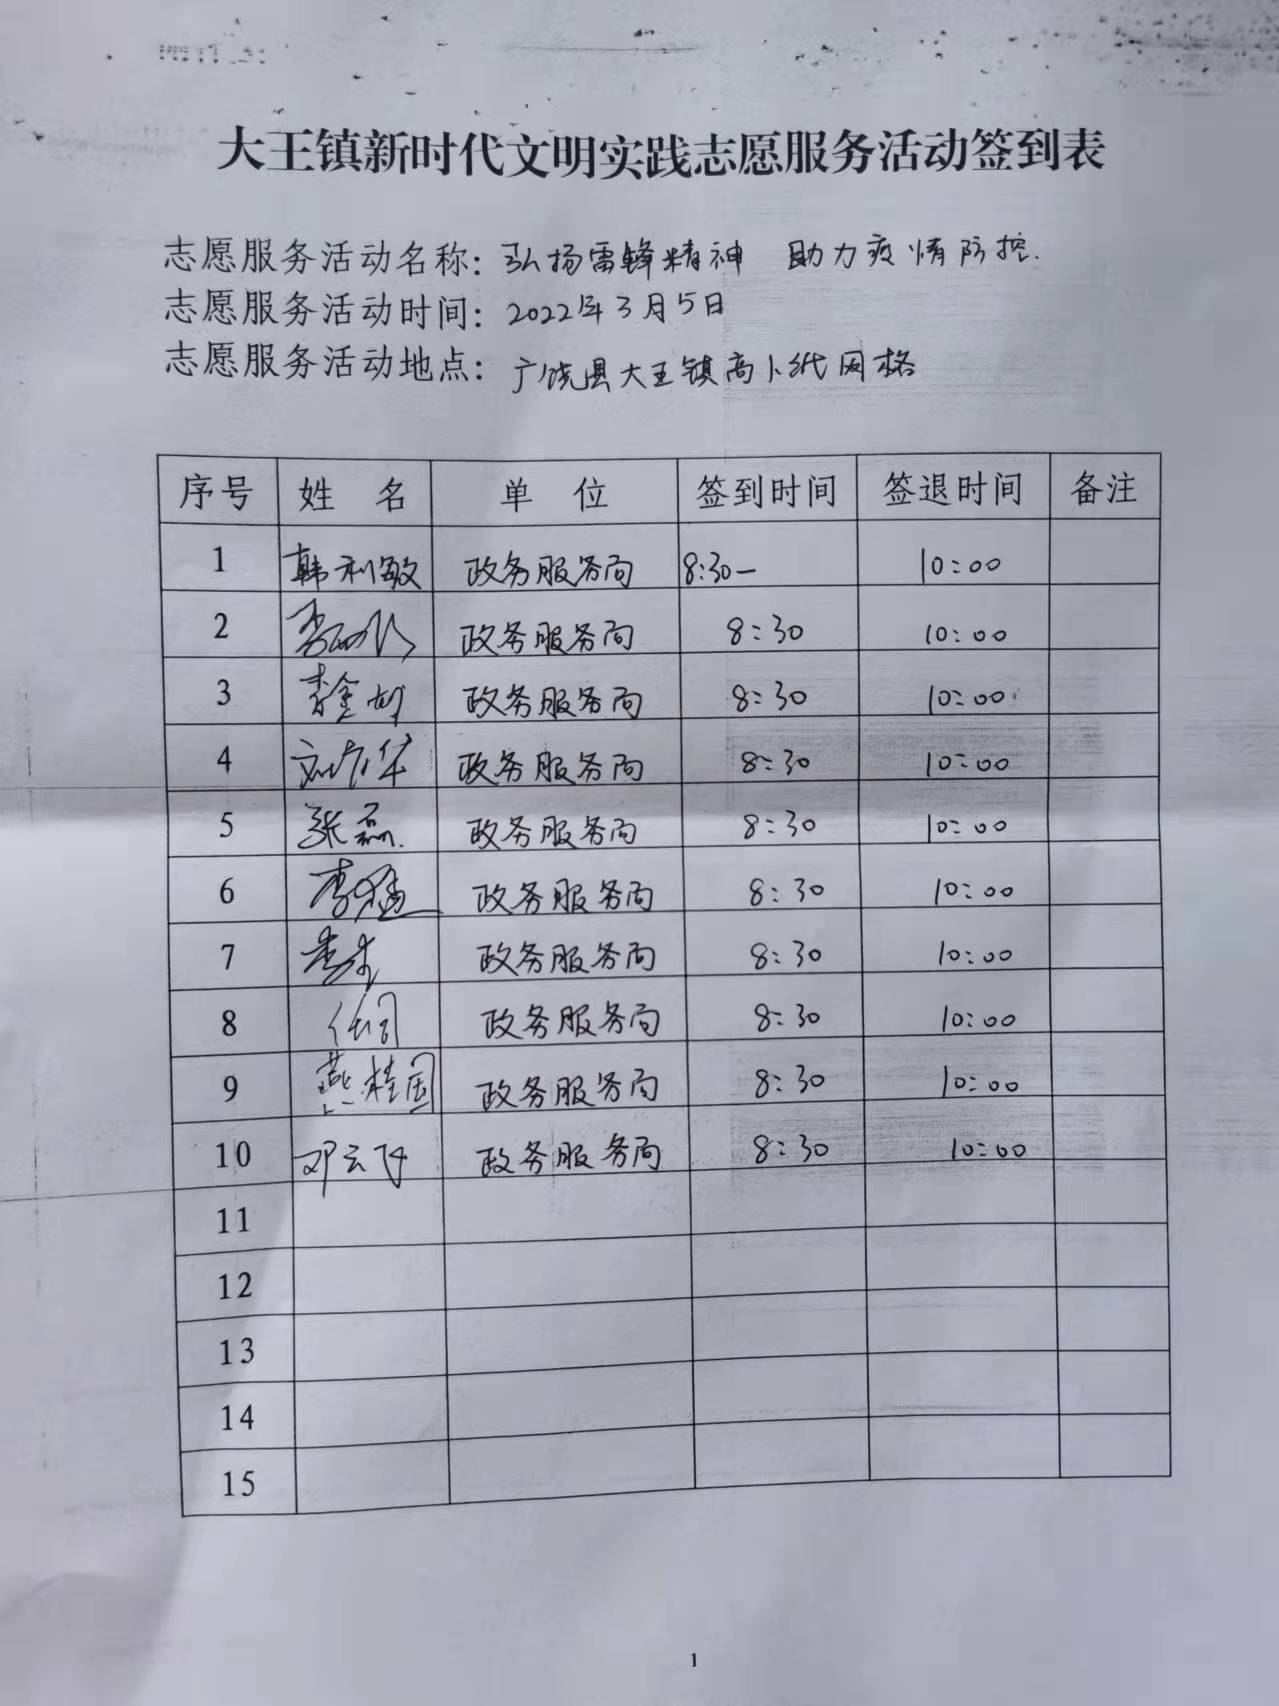 大王镇新时代文明实践志愿服务活动签到表
志愿服务活动名称：弘扬雷锋精神 助力疫情防控.
志愿服务活动时间：2022年3月5日
志愿服务活动地点：广饶县大王镇高卜纸网格
序号 姓名 单位 签到时间 签退时间 备注
1 韩利敏 政务服务局 8:30— 10:00
2 政务服务局 8:30 10:00
3 政务服务局 8:30 10:00
4 政务服务局 8:30 10:00
5 张磊. 政务服务局 8:30 10:00
6 政务服务局 8:30 10:00
7 政务服务局 8:30 10:00
8 政务服务局 8:30 10:00
9 燕桂国 政务服务局 8:30 10:00
10 邓云飞 政务服务局 8:30 10:00
11
12
13
14
15
1